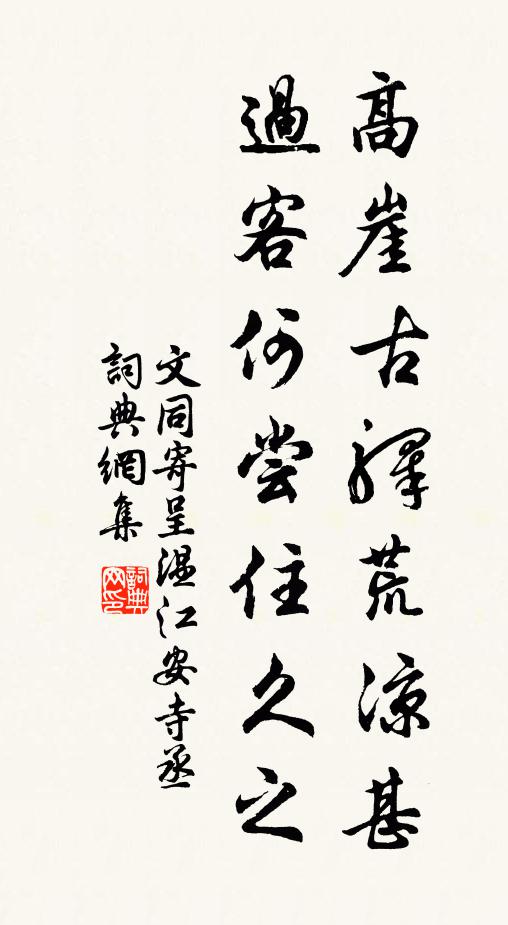 高崖古驛荒涼甚
過客何嘗住久之
文同寄呈温江安寺丞
詞典網集
詞典網印